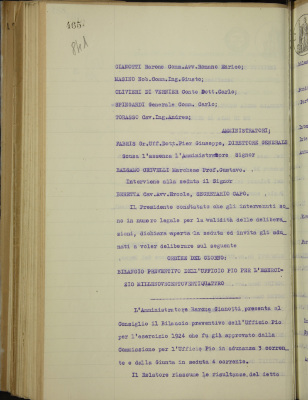 GIANOTTI Barone Comm.Avv.Romano Enrico;
MASINO Nob.Comm.Ing.Giusto;
OLIVIERI DI VERNIER Conte Dott.Carlo;
SPINGARDI Generale Comm. Carlo;
TOMASSO Cav.Ing.Andrea;
AMMINISTRATORI;
FABRIS Gr.Uff.Dott.Pier Giuseppe, DIRETTORE GENERALE
Scusa l'assenza l'Amministratore Signor
BALSAMO CRIVELLI Marchese Prof.Gustavo.
Interviene alla seduta il Signor
Avv.Ercole, SEGRETARIO CAPO.
Il Presidente constatato che gli intervenuti so=
no in numero legale per la validità delle delibera=
zioni, dichiara aperta la seduta ed invita gli adu=
nati a voler deliberare sul seguente
ORDINE DEL GIORNO:
BILANCIO PREVENTIVO DELL'UFFICIO PIO PER L'ESERCI=
ZIO MILLENOVECENTOVENTIQUATTRO
L'Amministratore Barone Gianotti, presenta al
Consiglio il Bilancio preventivo dell'Ufficio Pio
per l'esercizio 1924 che fu già approvato dalla
Commissione per l'Ufficio Pio in adunanza 3 corren=
te e dalla Giunta in seduta 4 corrente.
Il Relatore riassume le risultanze del detto